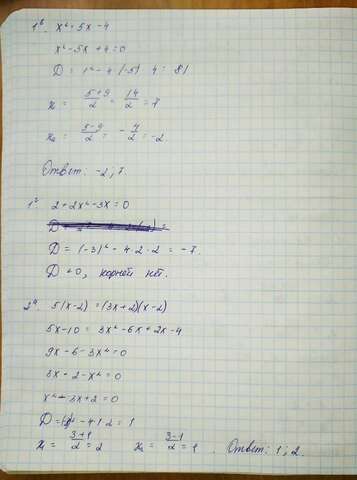 1ᵇ. x² = 5x - 4
x² - 5x + 4 = 0
D = 1² - 4 (-5) 4 = 81
x₁ = 5+9/2 = 14/2 = 7
x₂ = 5-9/2 = -4/2 = -2
Ответ: -2; 7.
2 + 2x² - 3x = 0
D = (-3)² - 4·2·2 = -7.
D < 0, корней нет.
5(x-2) = (3x+2)(x-2)
5x - 10 = 3x² - 6x + 2x - 4
9x - 6 - 3x² = 0
3x - 2 - x² = 0
x² - 3x + 2 = 0
x₁ = 3+1/2 = 2 x₂ = 3-1/2 = 1. Ответ: 1; 2.